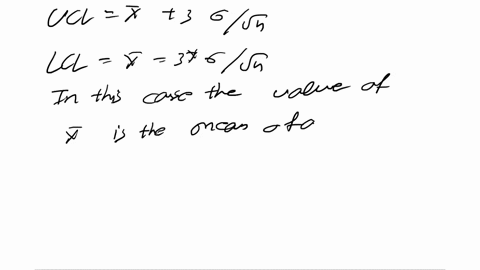 UCL = x̄ + 3 σ/√n
LCL = x̄ = 3* σ/√n
In this case the value of
x̄ is the mean of a